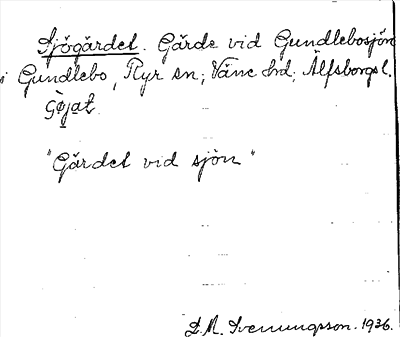 Sjögärdet. Gärde vid Gundlebosjön
i Gundlebo, Ryr sn; Väne hd; Älfsborgs l.
"Gärdet vid sjön"
D.M. Svenungsson. 1936.